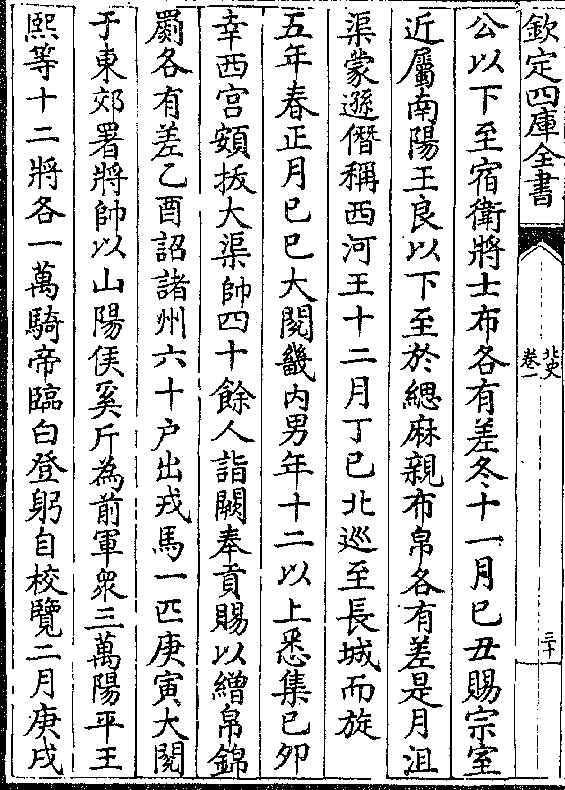 欽定四庫全書
北史
卷一
三十
公以下至宿衛將士布各有差冬十一月己丑賜宗室
近屬南陽王良以下至於緦麻親布帛各有差是月沮
渠蒙遜僭稱西河王十二月丁巳北巡至長城而旋
五年春正月己巳大閱畿内男年十二以上悉集己夘
幸西宮頞拔大渠帥四十餘人詣闕奉貢賜以繒帛錦
罽各有差乙酉詔諸州六十户出戎馬一匹庚寅大閱
于東郊署將帥以山陽侯奚斤為前軍衆三萬陽平王
熙等十二將各一萬騎帝臨白登躬自校覽二月庚戌